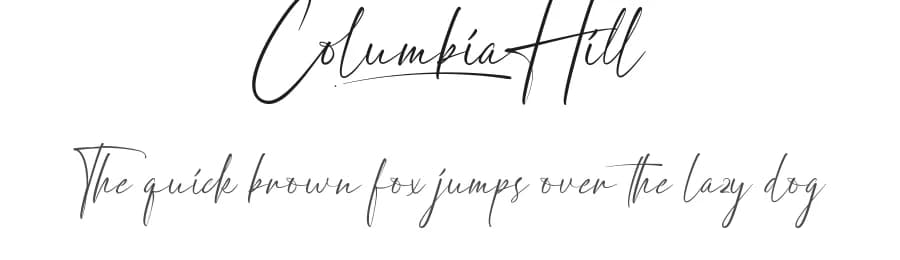 Columbia Hill
The quick brown fox jumps over the lazy dog